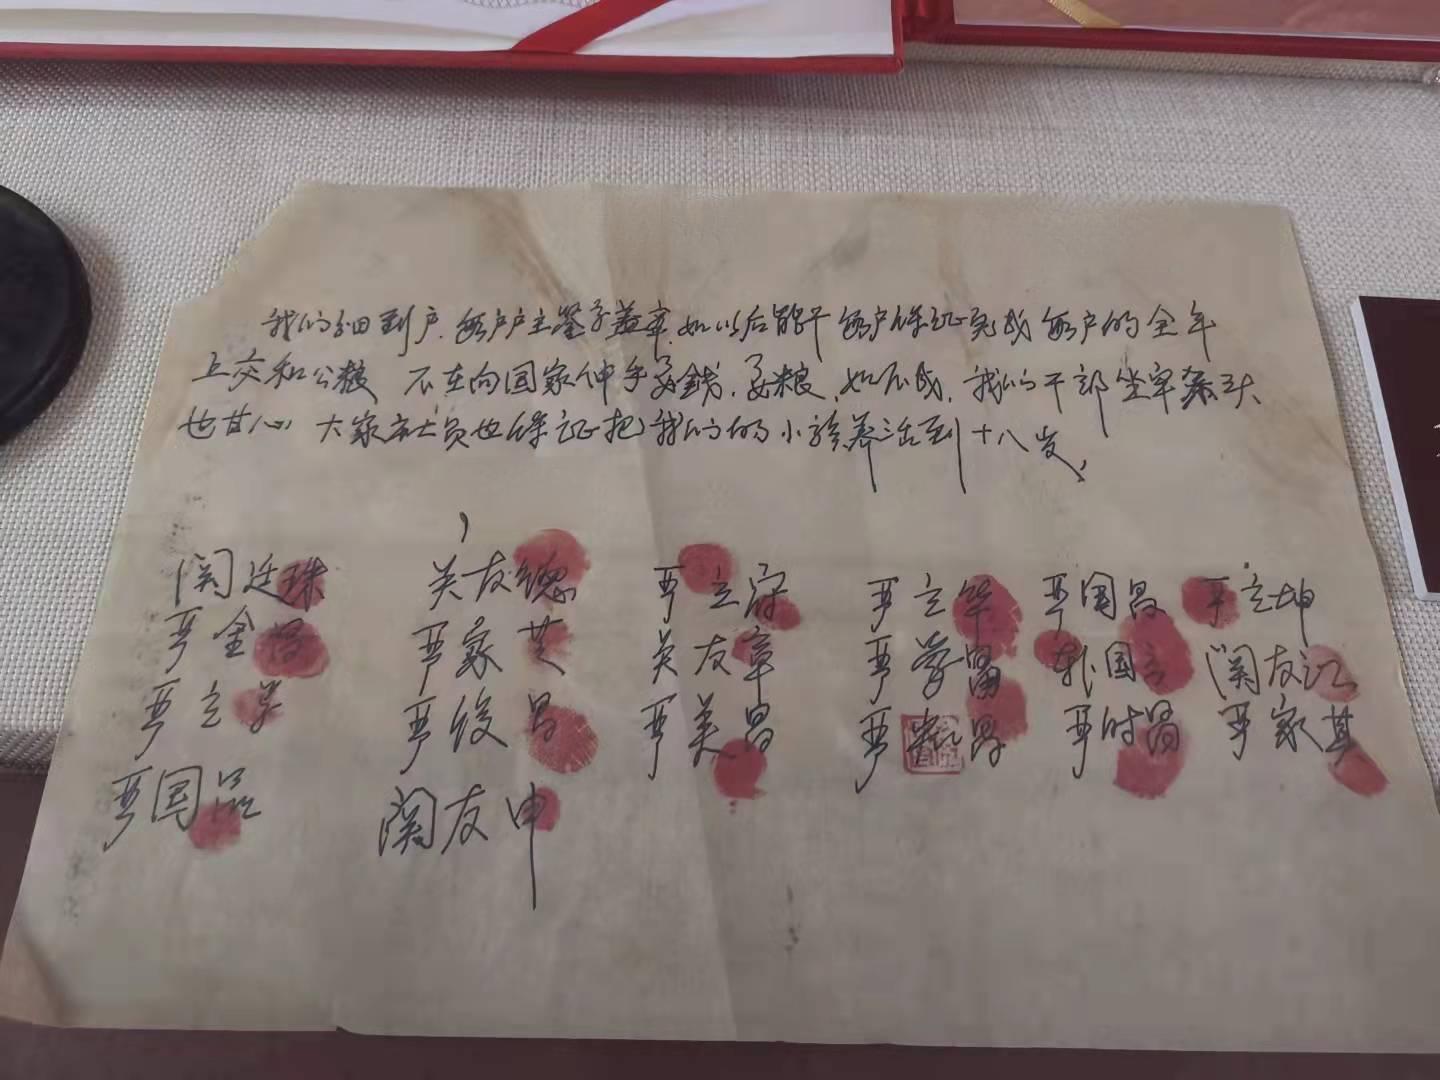 我们分田到户，每户户主签字盖章，如以后能干，每户保证完成每户的全年
上交和公粮 不在向国家伸手要钱，要粮，如不成，我们干部坐牢杀头
也甘心 大家社员也保证把我们的小孩养活到十八岁，
関廷珠 関友德 严立符 严立华 严国昌 严立坤
严金昌 严家芝 関友章 严学昌 韩国云 関友江
严立学 严俊昌 严美昌 严宏昌 严付昌 严家其
严国品 関友申